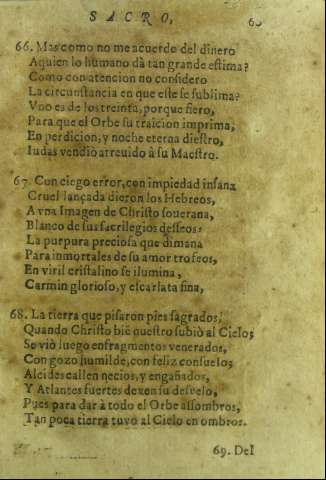 SACRO,
66. Mas como no me acuerdo del dinero
A quien lo humano dà tan grande estima?
Como con atencion no considero
La circunstancia en que este se sublima?
Vno es de los treinta, porque fiero,
Para que el Orbe su traicion imprima,
En perdicion, y noche eterna diestro,
Iudas vendiò atreuido à su Maestro.
67. Con ciego error, con impiedad insana
Cruel lançada dieron los Hebreos,
A vna Imagen de Christo souerana,
Blanco de sus sacrilegios desseos:
La purpura preciosa que dimana
Para inmortales de su amor trofeos,
En viril cristalino se ilumina,
Carmin glorioso, y escarlata fina,
68. La tierra que pisaron pies sagrados,
Quando Christo biē nuestro subiò al Cielo;
Se viò luego en fragmentos venerados,
Con gozo humilde, con feliz consuelo;
Alcides callen necios, y engañados,
Y Atlantes fuertes dexen su desvelo,
Pues para dar à todo el Orbe assombros,
Tan poca tierra tuvo al Cielo en ombros.
69. Del